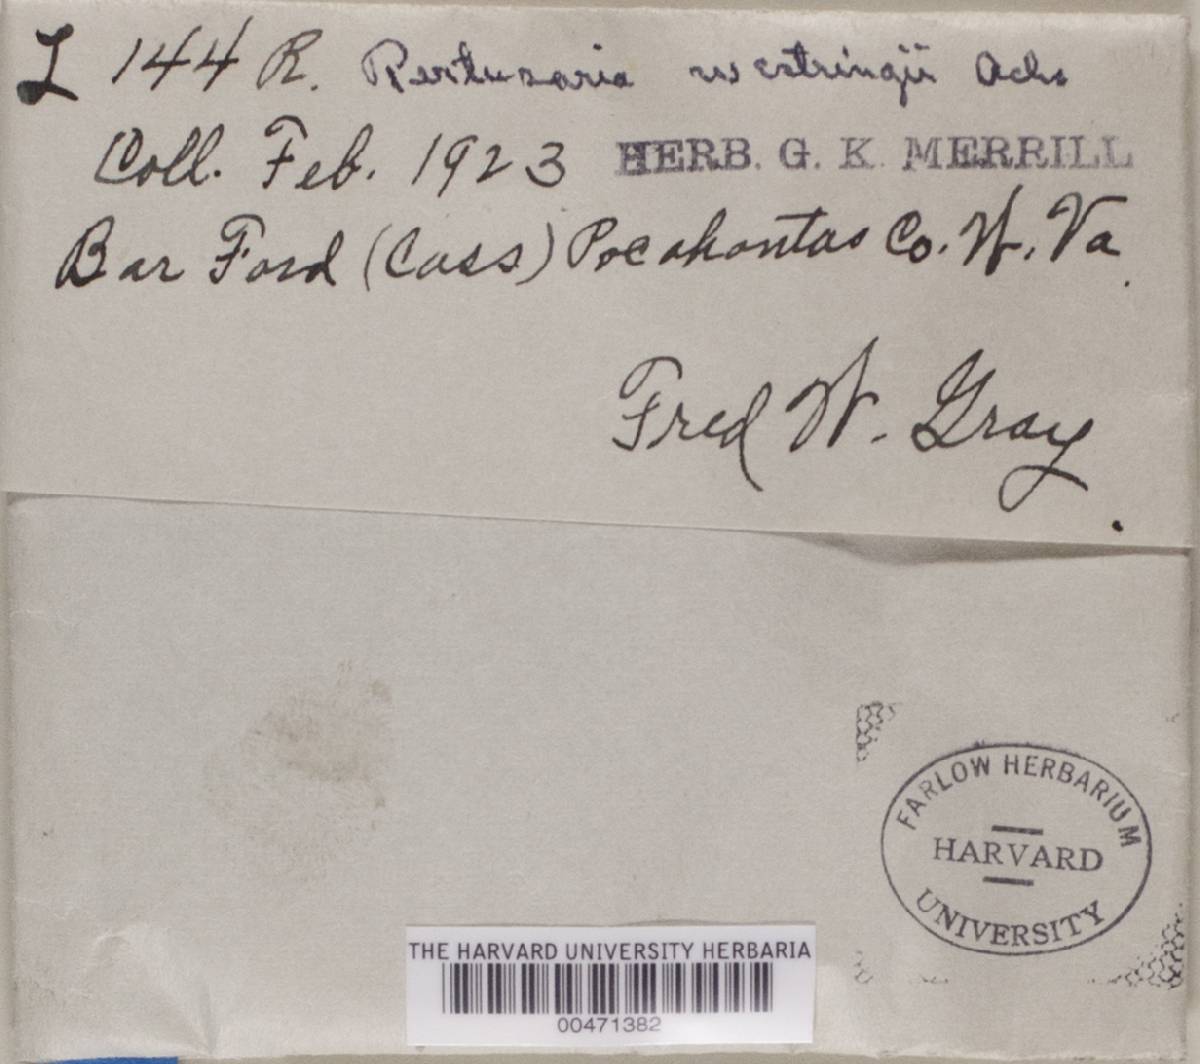 L 144 R. Pertusaria westringii Ach.
Coll. Feb. 1923 HERB. G. K. MERRILL
Bar Ford (Cass) Pocahontas Co. W. Va.
Fred W. Gray.
FARLOW HERBARIUM
HARVARD
UNIVERSITY
THE HARVARD UNIVERSITY HERBARIA
00471382